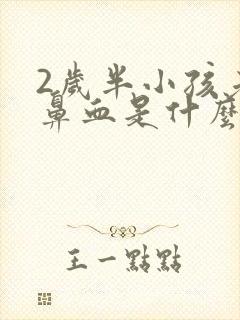 2歲半小孩
鼻血是什麼
王一點點